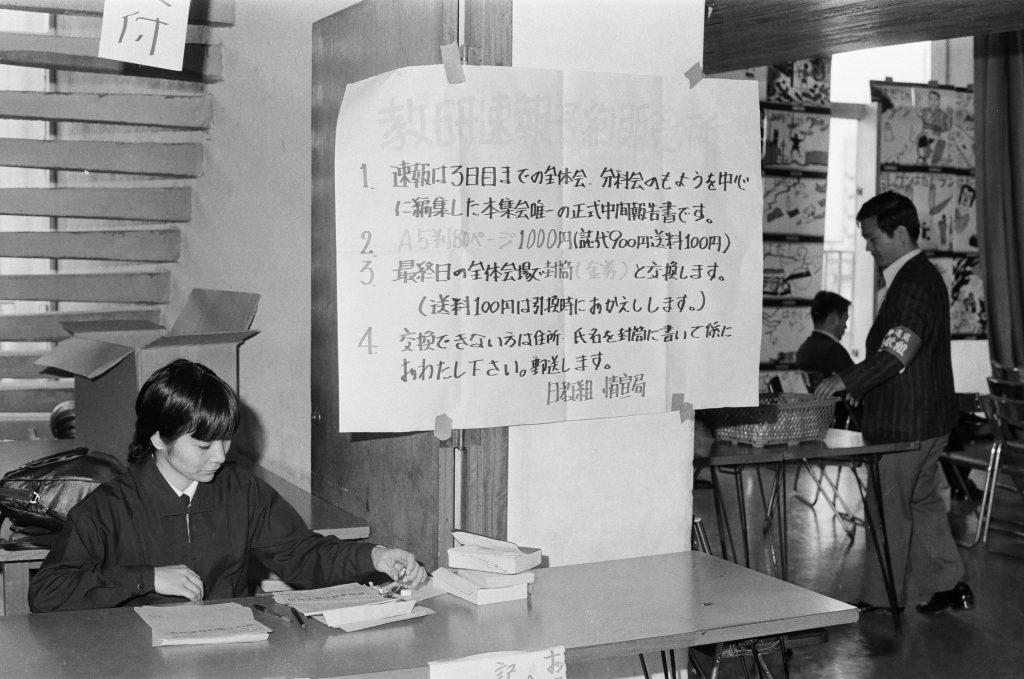 付
教研速報予約販売所
1. 速報は3日目までの全体会、分科会のもようを中心
に編集した本集会唯一の正式中間報告書です。
2. A5判180ページ1000円(誌代900円送料100円)
3. 最終日の全体会場で封筒(金券)と交換します。
(送料100円は引換時におかえしします。)
4. 交換できない方は住所、氏名を封筒に書いて係に
おわたし下さい。郵送します。
日教組 情宣局
お
記